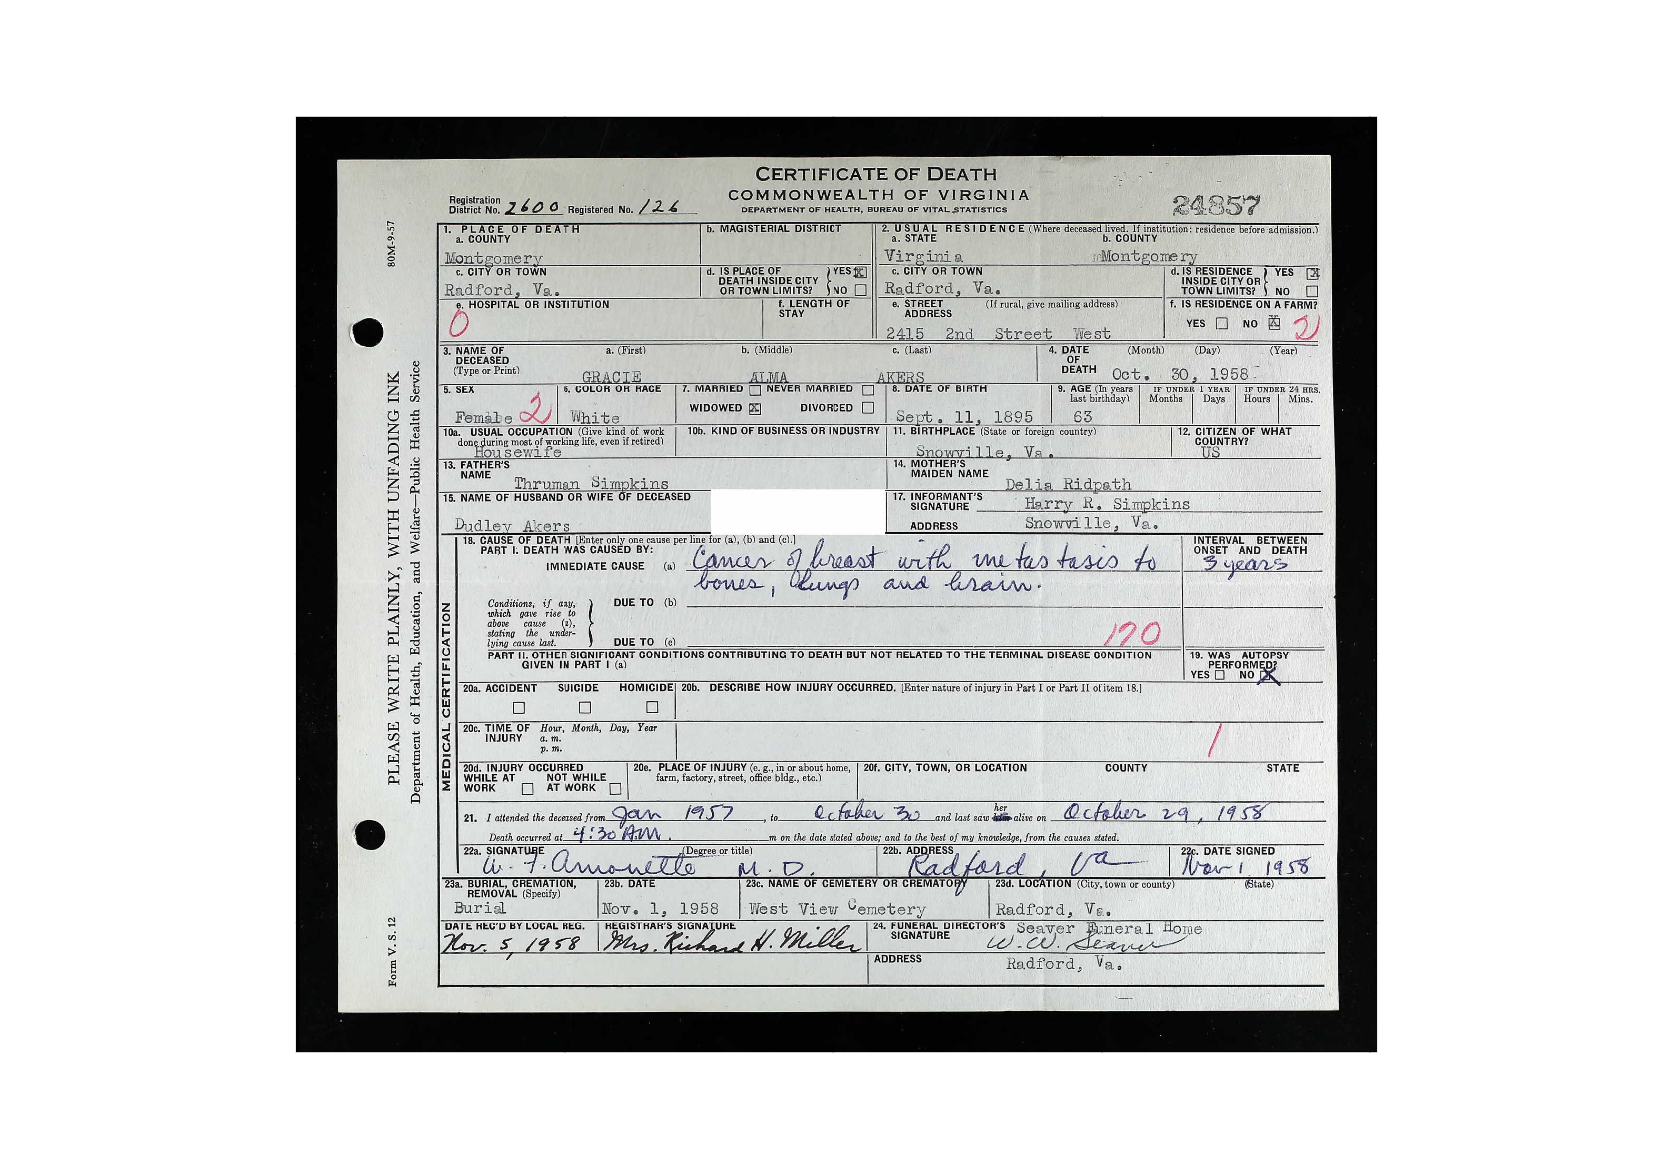 CERTIFICATE OF DEATH
COMMONWEALTH OF VIRGINIA
DEPARTMENT OF HEALTH, BUREAU OF VITAL STATISTICS
24857
Registration District No. 2600 Registered No. 126
80M-9-57
PLEASE WRITE PLAINLY, WITH UNFADING INK
Department of Health, Education, and Welfare—Public Health Service
Form V. S. 12
1. PLACE OF DEATH
a. COUNTY
Montgomery
b. MAGISTERIAL DISTRICT
2. USUAL RESIDENCE (Where deceased lived. If institution: residence before admission.)
a. STATE
Virginia
b. COUNTY
Montgomery
c. CITY OR TOWN
Radford, Va.
d. IS PLACE OF DEATH INSIDE CITY OR TOWN LIMITS? YES X NO
c. CITY OR TOWN
Radford, Va.
d. IS RESIDENCE INSIDE CITY OR TOWN LIMITS? YES X NO
e. HOSPITAL OR INSTITUTION
0
f. LENGTH OF STAY
e. STREET ADDRESS (If rural, give mailing address)
2415 2nd Street West
f. IS RESIDENCE ON A FARM?
YES NO X 2
3. NAME OF DECEASED (Type or Print)
a. (First) b. (Middle) c. (Last)
GRACIE ALMA AKERS
4. DATE OF DEATH (Month) (Day) (Year)
Oct. 30, 1958
5. SEX
Female 2
6. COLOR OR RACE
White
7. MARRIED NEVER MARRIED
WIDOWED X DIVORCED
8. DATE OF BIRTH
Sept. 11, 1895
9. AGE (In years last birthday)
63
IF UNDER 1 YEAR Months Days
IF UNDER 24 HRS. Hours Mins.
10a. USUAL OCCUPATION (Give kind of work done during most of working life, even if retired)
Housewife
10b. KIND OF BUSINESS OR INDUSTRY
11. BIRTHPLACE (State or foreign country)
Snowville, Va.
12. CITIZEN OF WHAT COUNTRY?
US
13. FATHER'S NAME
Thruman Simpkins
14. MOTHER'S MAIDEN NAME
Delia Ridpath
15. NAME OF HUSBAND OR WIFE OF DECEASED
Dudley Akers
17. INFORMANT'S SIGNATURE Harry R. Simpkins
ADDRESS Snowville, Va.
MEDICAL CERTIFICATION
18. CAUSE OF DEATH [Enter only one cause per line for (a), (b) and (c).]
PART I. DEATH WAS CAUSED BY:
IMMEDIATE CAUSE (a) Cancer of breast with metastasis to
bones, lungs and brain.
INTERVAL BETWEEN ONSET AND DEATH
3 years
Conditions, if any, which gave rise to above cause (a), stating the underlying cause last.
DUE TO (b)
DUE TO (c)
170
PART II. OTHER SIGNIFICANT CONDITIONS CONTRIBUTING TO DEATH BUT NOT RELATED TO THE TERMINAL DISEASE CONDITION GIVEN IN PART I (a)
19. WAS AUTOPSY PERFORMED?
YES NO X
20a. ACCIDENT SUICIDE HOMICIDE
20b. DESCRIBE HOW INJURY OCCURRED. [Enter nature of injury in Part I or Part II of item 18.]
20c. TIME OF INJURY Hour, Month, Day, Year
a. m.
p. m.
1
20d. INJURY OCCURRED
WHILE AT WORK NOT WHILE AT WORK
20e. PLACE OF INJURY (e. g., in or about home, farm, factory, street, office bldg., etc.)
20f. CITY, TOWN, OR LOCATION COUNTY STATE
21. I attended the deceased from Jan 1957, to October 30 and last saw her alive on October 29, 1958
Death occurred at 4:30 A.M. m on the date stated above; and to the best of my knowledge, from the causes stated.
22a. SIGNATURE (Degree or title)
W. F. Amonette M. D.
22b. ADDRESS
Radford, Va
22c. DATE SIGNED
Nov 1, 1958
23a. BURIAL, CREMATION, REMOVAL (Specify)
Burial
23b. DATE
Nov. 1, 1958
23c. NAME OF CEMETERY OR CREMATORY
West View Cemetery
23d. LOCATION (City, town or county) (State)
Radford, Va.
DATE REC'D BY LOCAL REG.
Nov. 5, 1958
REGISTRAR'S SIGNATURE
Mrs. Richard H. Miller
24. FUNERAL DIRECTOR'S SIGNATURE Seaver Funeral Home
W. W. Seaver
ADDRESS
Radford, Va.